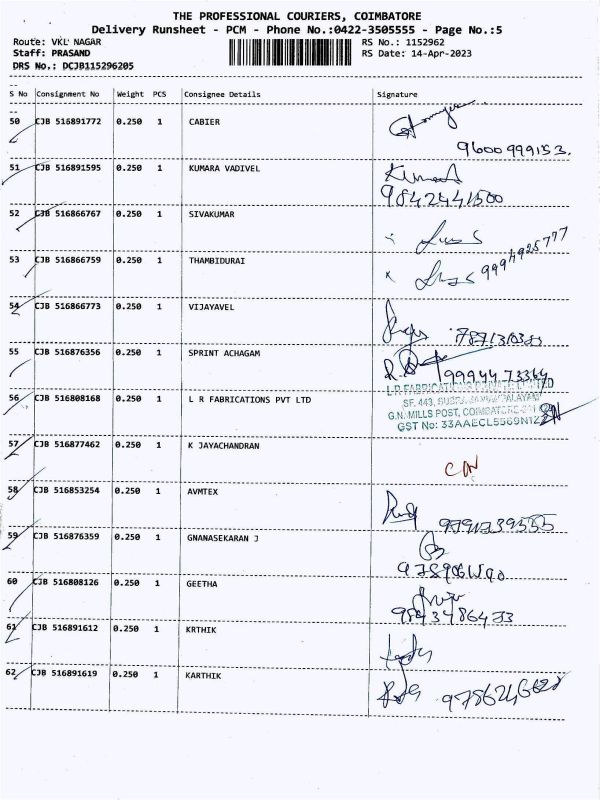 THE PROFESSIONAL COURIERS, COIMBATORE
Delivery Runsheet - PCM - Phone No.:0422-3505555 - Page No.:5
Route: VKL NAGAR RS No.: 1152962
Staff: PRASAND RS Date: 14-Apr-2023
DRS No.: DCJB115296205
S No Consignment No Weight PCS Consignee Details Signature
50 CJB 516891772 0.250 1 CABIER
9600999153.
51 CJB 516891595 0.250 1 KUMARA VADIVEL
9842441500
52 CJB 516866767 0.250 1 SIVAKUMAR
53 CJB 516866759 0.250 1 THAMBIDURAI
9994925777
54 CJB 516866773 0.250 1 VIJAYAVEL
55 CJB 516876356 0.250 1 SPRINT ACHAGAM
99944 73364
56 CJB 516808168 0.250 1 L R FABRICATIONS PVT LTD
L R FABRICATIONS PRIVATE LIMITED
SF. 443,
G.N. MILLS POST, COIMBATORE
GST No: 33AAECL5569N1Z
57 CJB 516877462 0.250 1 K JAYACHANDRAN
58 CJB 516853254 0.250 1 AVMTEX
59 CJB 516876359 0.250 1 GNANASEKARAN J
60 CJB 516808126 0.250 1 GEETHA
61 CJB 516891612 0.250 1 KRTHIK
62 CJB 516891619 0.250 1 KARTHIK